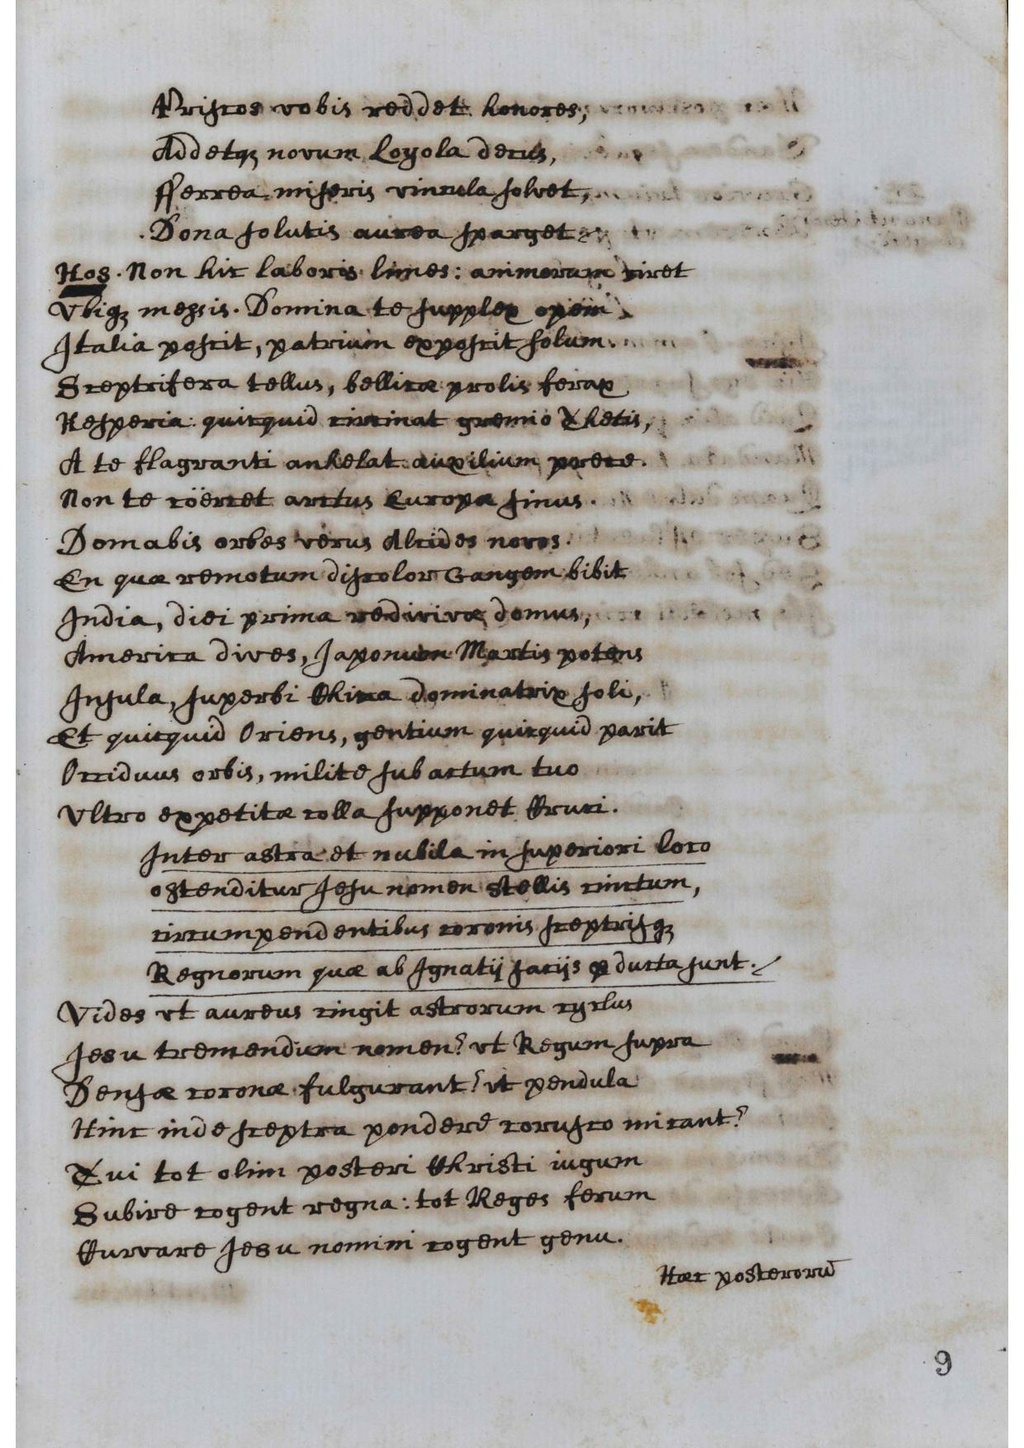 Priscos vobis reddet honores,
Addetqꝫ novum Loyola decus,
Ferrea miseris vincula solvet,
Dona solutis aurea sparget.
Hos. Non hic laboris limes: animarum viret
Vbiqꝫ messis. Domina te supplex opem
Italia poscit, patrium exposcit solum
Sceptrifera tellus, bellicæ prolis ferax
Hesperia: quicquid circinat gremio Thetis,
A te flagranti anhelat auxilium prece.
Non te cöercet arctus Europæ sinus.
Domabis orbes verus Alcides novos.
En quæ remotum discolor Gangem bibit
India, diei prima redivivæ domus,
America dives, Japonum Martis potens
Insula, superbi China dominatrix soli,
Et quicquid Oriens, gentium quicquid parit
Occiduus orbis, milite subactum tuo
Vltro expetitæ colla supponet Cruci.
Inter astra et nubila in superiori loco
ostenditur Jesu nomen stellis cinctum,
circumpendentibus coronis sceptrisqꝫ
Regnorum quæ ab Ignatij sacijs ꝑducta sunt.
Vides vt aureus cingit astrorum cyclus
Jesu tremendum nomen? vt Regum supra
Densæ coronæ fulgurant? vt pendula
Hinc inde sceptra pondere corusco micant?
Tui tot olim posteri Christi iugum
Subire cogent regna: tot Reges ferum
Curvare Jesu nomini cogent genu.
Hæc posterorū
9